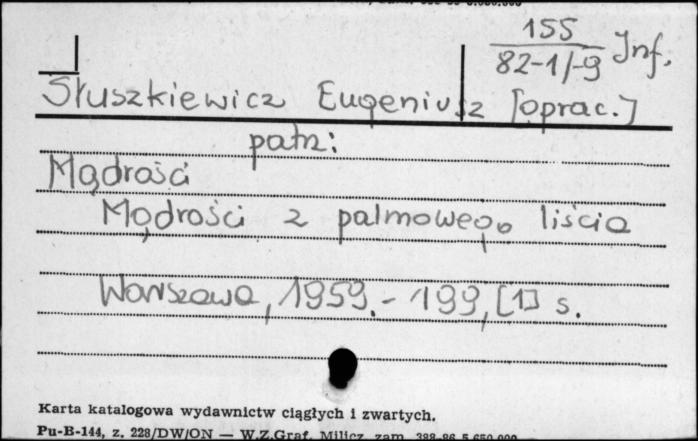 155
82-1/-9 Inf.
Słuszkiewicz Eugeniusz [oprac.]
patrz:
Mądrości
Mądrości z palmowego liścia
Warszawa, 1959. - 199, [1] s.
Karta katalogowa wydawnictw ciągłych i zwartych.
Pu-B-144, z. 228/DW/ON — W.Z.Graf. Milicz, zam. 388-86 5.650.000